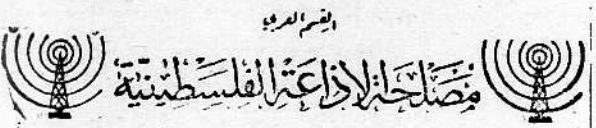 القسم العربي
مصلحة الاذاعة الفلسطينية